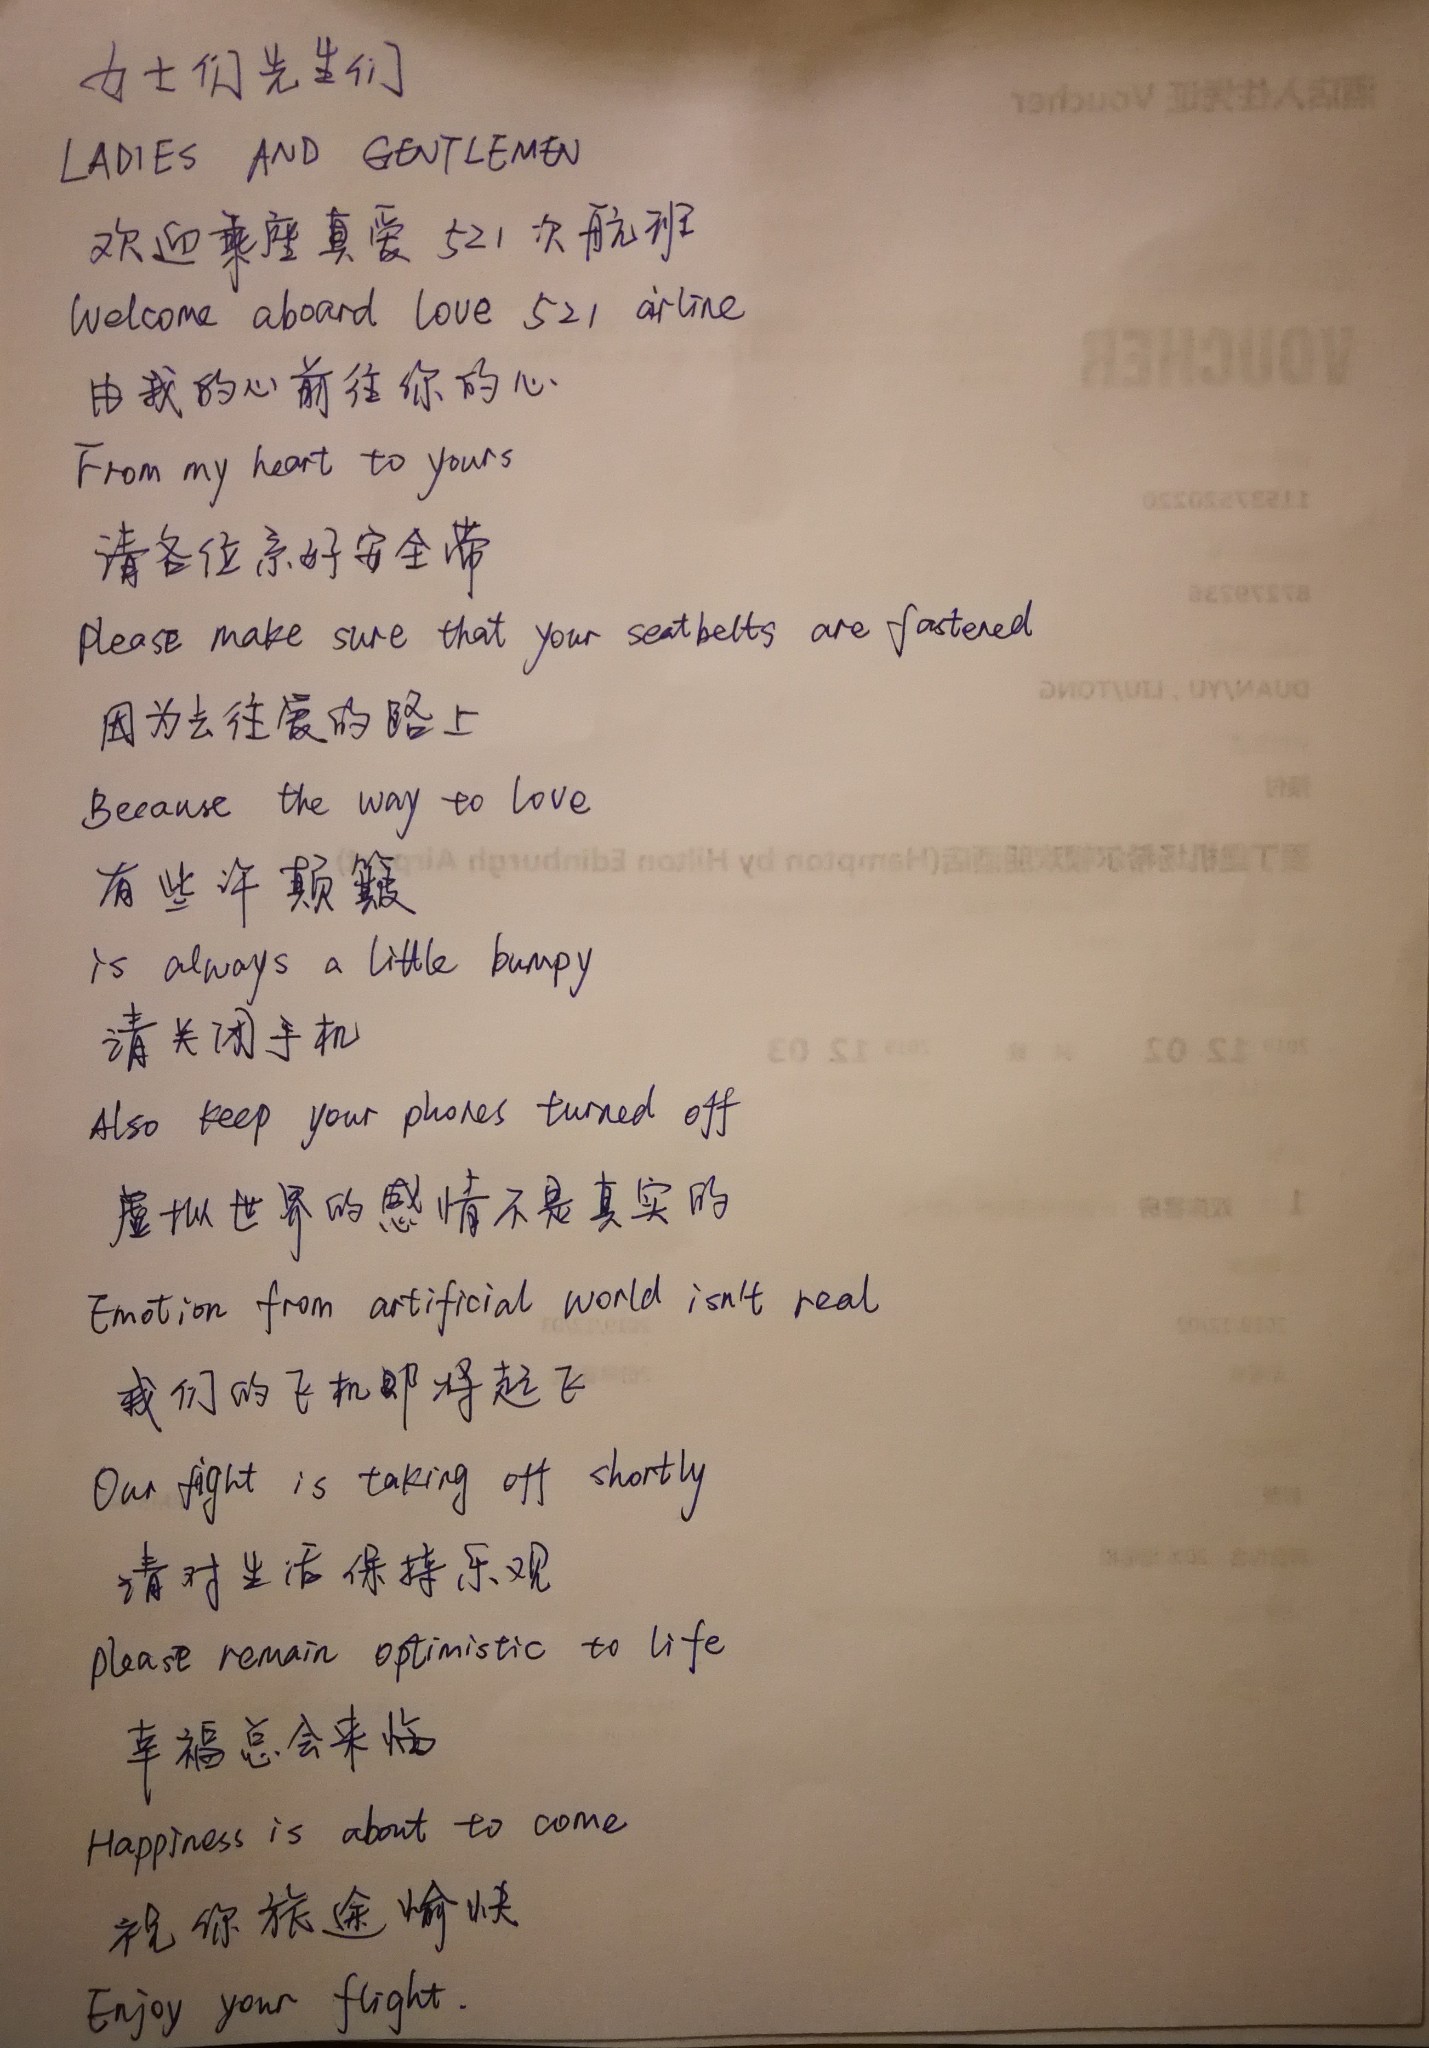 女士们先生们
LADIES AND GENTLEMEN
欢迎乘座真爱521次航班
Welcome aboard love 521 airline
由我的心前往你的心
From my heart to yours
请各位系好安全带
Please make sure that your seatbelts are fastened
因为去往爱的路上
Because the way to love
有些许颠簸
is always a little bumpy
请关闭手机
Also keep your phones turned off
虚拟世界的感情不是真实的
Emotion from artificial world isn't real
我们的飞机即将起飞
Our flight is taking off shortly
请对生活保持乐观
please remain optimistic to life
幸福总会来临
Happiness is about to come
祝你旅途愉快
Enjoy your flight.
酒店入住凭证 Voucher
VOUCHER
11537520220
87279736
DUAN/YU , LIU/TONG
预付